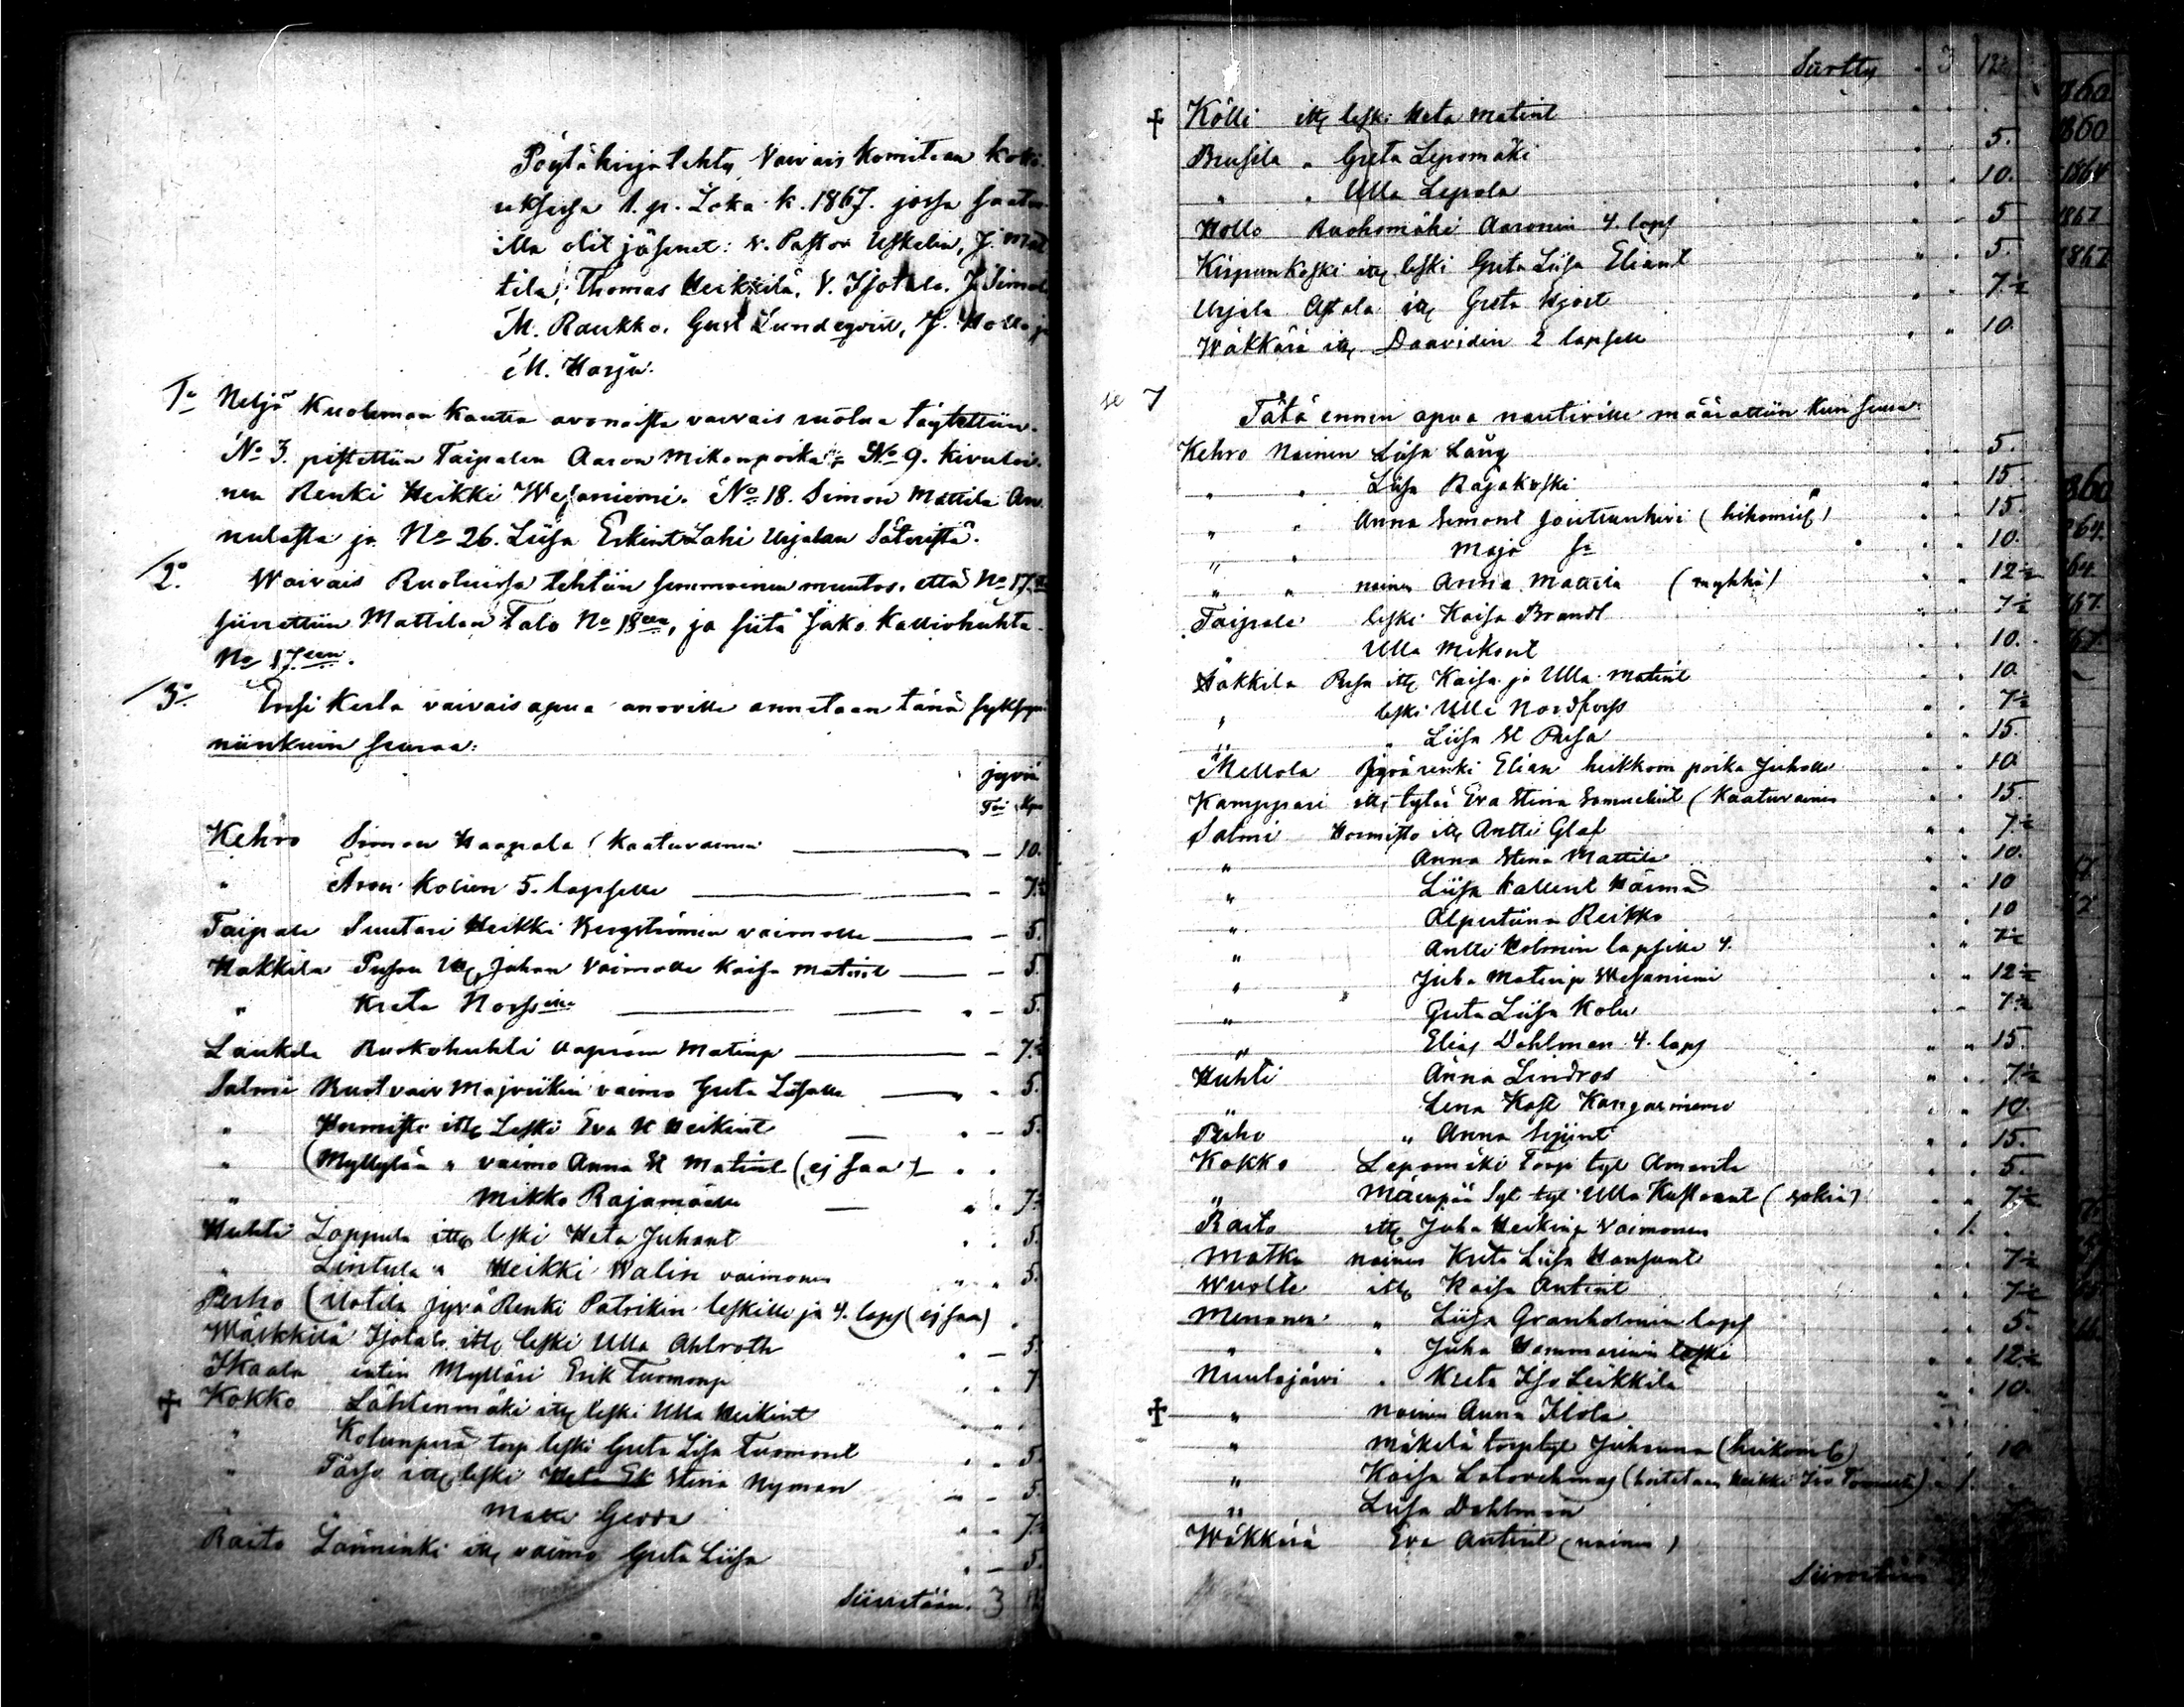 Pöytäkirja tehty Vaivais Komitean koko-
uksessa 1. p. Loka k. 1867. jossa saatu-
illa olit jäsenet: v. Pastor Uskelin, J. Mat
tila, Thomas Heikkilä, V. Isotalo, J. Simol
M. Raukko, Gust Lundqvist, J. Hollo ja
M. Harju.
1o Neljä kuoleman kautta avonaista vaivais ruotua täytettiin.
No 3. pistettiin Taipalen Aaron Mikonpoika; No 9. kivuloi-
nen Renki Heikki Wesaniemi. No 18. Simon Mattila An-
nulasta ja No 26. Liisa Erkint Lahi Urjalan Säteristä.
2o. Waivais Ruotuissa tehtiin semmoinen muutos, että No 17.
siirrettiin Mattilan Talo No 18een, ja siitä Jako Kalliohuhta
No 17een.
3o. Ensi kerta vaivaisapua anoville annetaan tänä syksynä
niinkuin seuraa:
jyviä
Tri Kpa
Kehro Simon Haapala (Kaatuvainen — 10.
" Aron Kolien 5. lapselle — 7½
Taipale Suutari Heikki Bergströmin vaimolle — 5.
Hakkila Pusan itll Johan vaimolle Kaisa Matint — 5.
" Kreta Norssille — 5.
Laukela Ruokohuhti Aapram Matinp — 7½
Salmi Ruotvaiv Majviikin vaimo Greta Liisalle — 5.
" Hormisto itll Leski Eva St Heikint — 5.
" (Myllylän " vaimo Anna St Matint (ej saa)
" Mikko Rajamäelle — 7½
Huhti Loppula itll leski Heta Juhant 5.
" Lintula " Heikki Walin vaimonen " " 5.
Perho (Ilotila jyvä Renki Patrikin leskille ja 4. laps (ej saa)
Wäkkilä Isotalo itll leski Ulla Ahlroth 5.
Skaala entin Mylläri Erik Tuomonp 7
† Kokko Lähtenmäki itll leski Ulla Heikint
" Kolunperä torp leski Greta Liisa Tuomont 5.
" itll leski Heta Ek Stina Nyman 5.
" Matti Gerda 7½
Raito Länninki itll vaimo Greta Liisa 5.
Siirretään. 3 12
Siirtty 3 12½
† Kölli itll leski Heta Matint
Brusila " Greta Lepomäki 5.
" " Ulla Lepola 10.
Hollo Ruohomäki Aaronin 4. laps 5
Kiipunkoski itll leski Greta Liisa Eliant 5.
Urjala Astala itll Greta Hjort 7½
Wäkkärä itll Daavidin 2 lapselle 10.
Tätä ennen apua nautiville määrättiin kuin seuraa:
Kehro Nainen Liisa Lång 5.
" " Liisa Rajakoski 15
" " Anna Simont Joutunkivi (heikomiel) 15.
" " Maja 10.
" " nainen Anna Mattila (mykkä) 12½
Taipale leski Kaisa Brandt 7½
" Ulla Mikont 10.
Hakkila Pusa itll Kaisa ja Ulla Matint 10
" leski Ulla Nordfors 7½
" " Liisa St Pusa 15.
Mellola Jyvärenki Elian heikkom poika Juholle 10
Kamppari itll tytär Eva Stina Samuelint (Kaatuvainen 15.
Salmi Hormisto itll Antti Glaf 7½
" Anna Stina Mattila 10.
" Liisa Kallent Härmä 10
" Alpertiina Reikko 10
" Antti Kolmin lapsille 4. 7½
" Juha Matinp Wesaniemi 12½
" Greta Liisa Kolu 7½
" Elias Dahlman 4. laps 15.
Huhti Anna Lindros 7½
" Lena Kast Kangasniemi 10.
Perho " Anna 15.
Kokko Lepomäki Torp tyt Amanda 5.
" Mäenpää tyt Ulla Kustaant (sokia) 7½
Raito itll Juha Heikinp Vaimonen 1.
Matku nainen Kreta Liisa Hansant 7½
Wuolte itll Kaisa Antint 7½
Menonen " Liisa Granholmin laps 5.
" " Juha Hammarinin leski 12½
Nuutajärvi " Kreta Iso Leikkilä 10.
† " nainen Anna Ilola
" Mäkelä torp tyt Juhanna (heikomb) 10
" Kaisa Latovehmas (hoitetaan Heikki Iso Tommila) 1.
" Liisa Dahlman
Wäkkärä Eva Antint (nainen)
Siirretään
1860
1860
1864
1867
1867
1860
64.
64
67.
67.